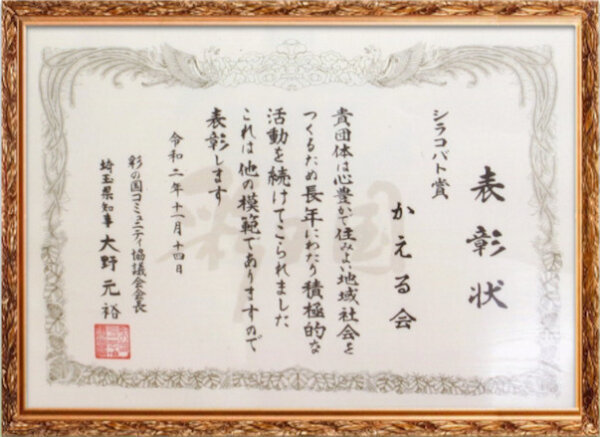 表彰状
シラコバト賞
かえる会
貴団体は心豊かで住みよい地域社会を
つくるため長年にわたり積極的な
活動を続けてこられました
これは他の模範でありますので
表彰します
令和二年十一月十四日
彩の国コミュニティ協議会会長
埼玉県知事 大野元裕
彩の国